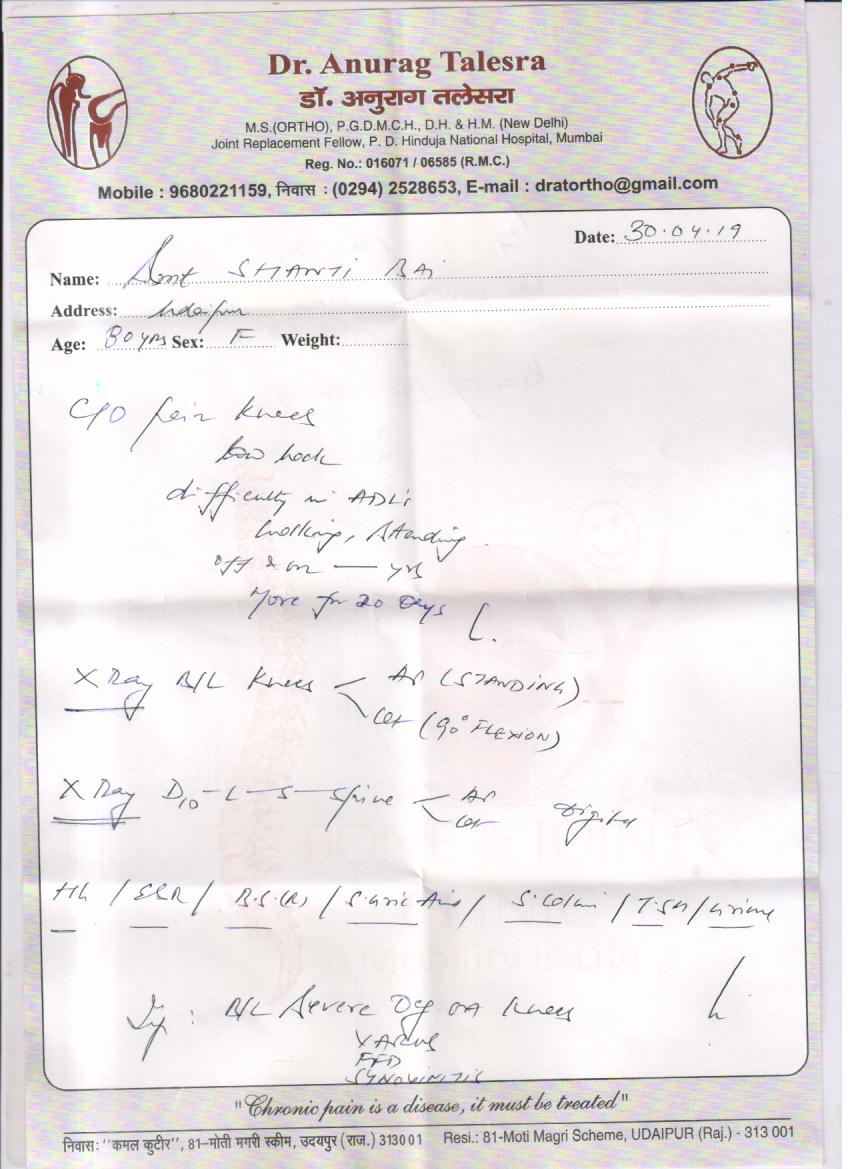 Dr. Anurag Talesra
डॉ. अनुराग तलेसरा
M.S.(ORTHO), P.G.D.M.C.H., D.H. & H.M. (New Delhi)
Joint Replacement Fellow, P. D. Hinduja National Hospital, Mumbai
Reg. No.: 016071 / 06585 (R.M.C.)
Mobile : 9680221159, निवास : (0294) 2528653, E-mail : dratortho@gmail.com
Date: 30.04.19
Name: Smt SHANTI BAi
Address: Udaipur
Age: 80 yrs Sex: F Weight:
C/O pain Knees
low back
difficulty in ADL's
walking, standing
off & on — yrs
More for 20 Days
X Ray B/L Knees AP (STANDING)
Lat (90° FLEXION)
X Ray D10-L-S-Spine AP
Lat Digital
Hb / ESR / B.S.(R) / S.Uric Acid / S. Calcium / TSH / Urine
Imp : B/L Severe Deg OA Knees
VARUS
FFD
SYNOVINITIS
BONE & JOINT
Mobility is Life
"Chronic pain is a disease, it must be treated"
निवास: ''कमल कुटीर'', 81–मोती मगरी स्कीम, उदयपुर (राज.) 313001 Resi.: 81-Moti Magri Scheme, UDAIPUR (Raj.) - 313 001